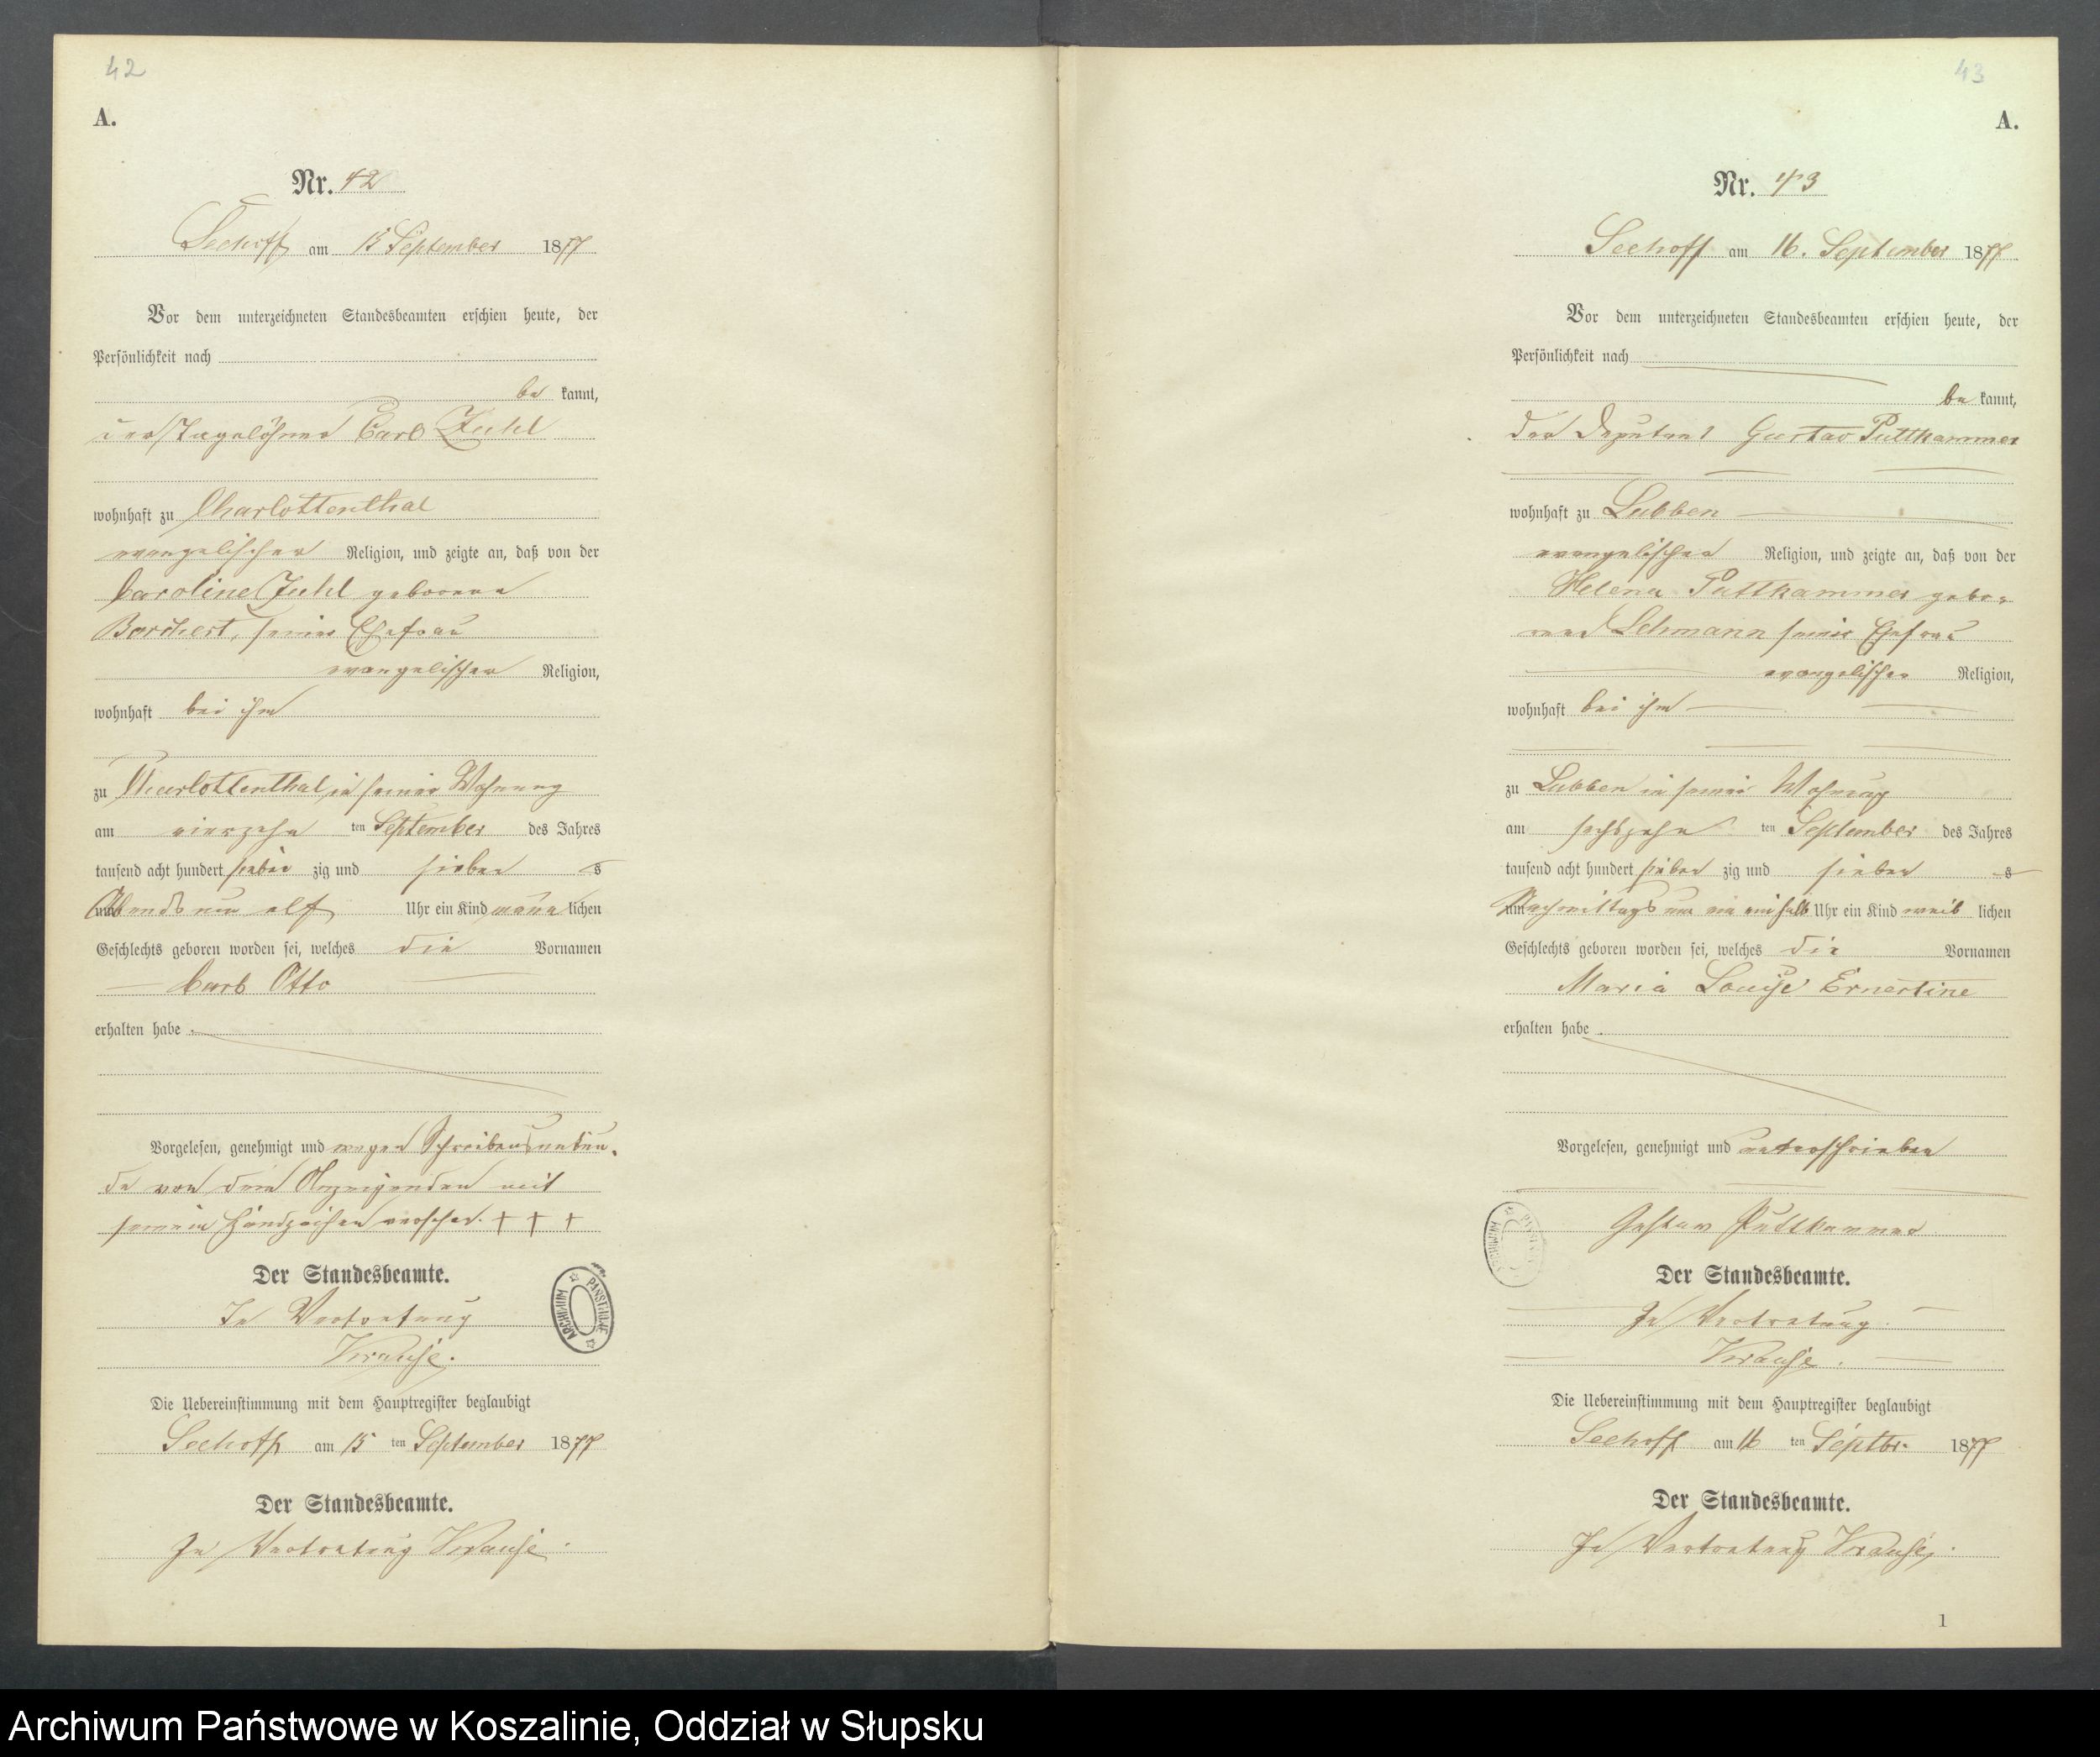 42
A.
Nr. 42
Seehoff am 15 September 1877
Vor dem unterzeichneten Standesbeamten erschien heute, der
Persönlichkeit nach
be kannt,
der Tagelöhner Carl
wohnhaft zu Charlottenthal
evangelischer Religion, und zeigte an, daß von der
Caroline geborene
Borchert, seiner Ehefrau
evangelischer Religion,
wohnhaft bei ihm
zu Charlottenthal in seiner Wohnung
am vierzehn ten September des Jahres
tausend acht hundert sieben zig und sieben
Abends um elf Uhr ein Kind männ lichen
Geschlechts geboren worden sei, welches die Vornamen
Carl Otto
erhalten habe.
Vorgelesen, genehmigt und wegen Schreibensunkun-
de von dem Anzeigenden mit
seinem Handzeichen versehen. + + +
Der Standesbeamte.
In Vertretung
Krause.
Die Uebereinstimmung mit dem Hauptregister beglaubigt
Seehoff am 15 ten September 1877
Der Standesbeamte.
In Vertretung Krause.
ARCHIWUM PAŃSTWOWE
43
A.
Nr. 43
Seehoff am 16. September 1877
Vor dem unterzeichneten Standesbeamten erschien heute, der
Persönlichkeit nach
be kannt,
der Deputant Gustav Puttkammer
wohnhaft zu Lubben
evangelischer Religion, und zeigte an, daß von der
Helena Puttkammer gebo-
rene Lehmann seiner Ehefrau
evangelischer Religion,
wohnhaft bei ihm
zu Lubben in seiner Wohnung
am sechszehn ten September des Jahres
tausend acht hundert sieben zig und sieben
Nachmittags um ein einhalb Uhr ein Kind weib lichen
Geschlechts geboren worden sei, welches die Vornamen
Maria Louise Ernestine
erhalten habe.
Vorgelesen, genehmigt und unterschrieben
Gustav Puttkammer
Der Standesbeamte.
In Vertretung.
Krause.
Die Uebereinstimmung mit dem Hauptregister beglaubigt
Seehoff am 16 ten Septbr. 1877
Der Standesbeamte.
In Vertretung Krause.
1
Archiwum Państwowe w Koszalinie, Oddział w Słupsku